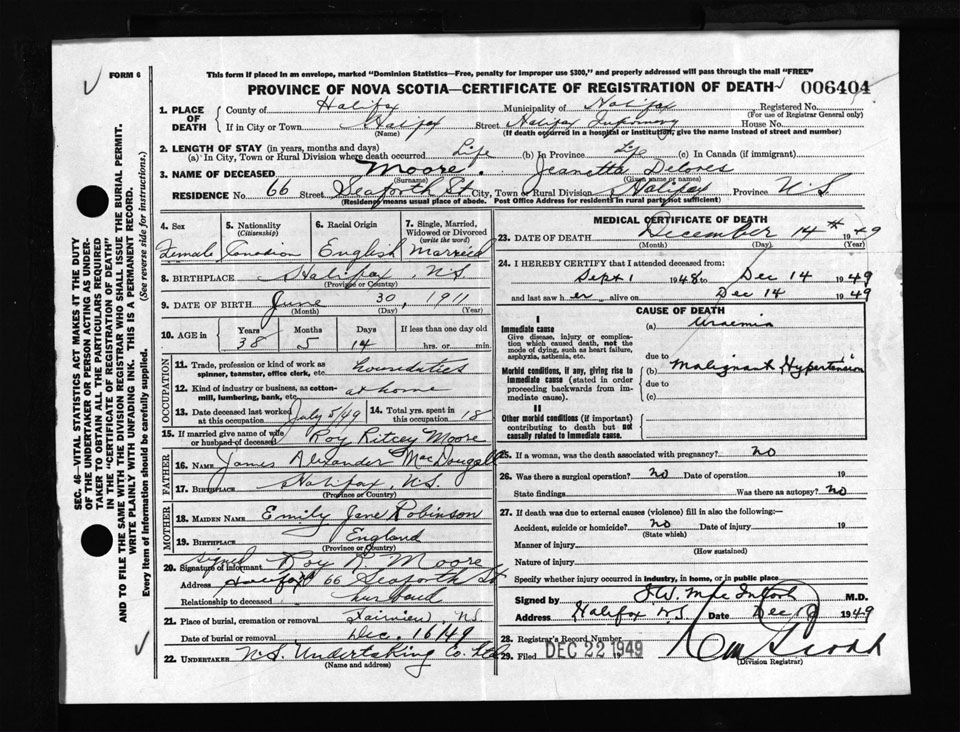 FORM 6
This form if placed in an envelope, marked "Dominion Statistics—Free, penalty for improper use $300," and properly addressed will pass through the mail "FREE"
PROVINCE OF NOVA SCOTIA—CERTIFICATE OF REGISTRATION OF DEATH 006404
1. PLACE OF DEATH
County of Halifax Municipality of Halifax Registered No.
(For use of Registrar General only)
If in City or Town Halifax Street Halifax Infirmary House No.
(Name) (If death occurred in a hospital or institution, give the name instead of street and number)
2. LENGTH OF STAY (in years, months and days)
(a) In City, Town or Rural Division where death occurred Life (b) In Province Life (c) In Canada (if immigrant)
3. NAME OF DECEASED Moore. Jeanetta Delores
(Surname) (Given name or names)
RESIDENCE No. 66 Street Seaforth St City, Town or Rural Division Halifax Province N.S
(Residency means usual place of abode. Post Office Address for residents in rural parts not sufficient)
4. Sex Female
5. Nationality (Citizenship) Canadian
6. Racial Origin English
7. Single, Married, Widowed or Divorced (write the word) Married
8. BIRTHPLACE Halifax, N.S.
(Province or Country)
9. DATE OF BIRTH June 30, 1911
(Month) (Day) (Year)
10. AGE in Years 38 Months 5 Days 14 If less than one day old hrs. or min.
OCCUPATION
11. Trade, profession or kind of work as spinner, teamster, office clerk, etc. houseduties
12. Kind of industry or business, as cotton-mill, lumbering, bank, etc. at home
13. Date deceased last worked at this occupation July 5/49 14. Total yrs. spent in this occupation 18
15. If married give name of wife or husband of deceased Roy Ritcey Moore
FATHER
16. NAME James Alexander MacDougall
17. BIRTHPLACE Halifax, N.S.
(Province or Country)
MOTHER
18. MAIDEN NAME Emily Jane Robinson
19. BIRTHPLACE England
(Province or Country)
20. Signature of informant signed Roy R. Moore
Address Halifax 66 Seaforth St
Relationship to deceased husband
21. Place of burial, cremation or removal Fairview, N.S.
Date of burial or removal Dec. 16/49
22. UNDERTAKER N.S. Undertaking Co. Ltd
(Name and address)
MEDICAL CERTIFICATE OF DEATH
23. DATE OF DEATH December 14th 1949
(Month) (Day) (Year)
24. I HEREBY CERTIFY that I attended deceased from:
Sept 1 1948 to Dec 14 1949
and last saw her alive on Dec 14 1949
CAUSE OF DEATH
I
Immediate cause (a) Uraemia
Give disease, injury or complication which caused death, not the mode of dying, such as heart failure, asphyxia, asthenia, etc.
due to
Morbid conditions, if any, giving rise to immediate cause (stated in order proceeding backwards from immediate cause).
(b) Malignant Hypertension
due to
(c)
II
Other morbid conditions (if important) contributing to death but not causally related to immediate cause.
25. If a woman, was the death associated with pregnancy? no
26. Was there a surgical operation? no Date of operation 19
State findings Was there an autopsy? no
27. If death was due to external causes (violence) fill in also the following:—
Accident, suicide or homicide? no Date of injury 19
(State which)
Manner of injury
(How sustained)
Nature of injury
Specify whether injury occurred in industry, in home, or in public place
Signed by W. MacIntosh M.D.
Address Halifax N.S. Date Dec 1949
28. Registrar's Record Number
29. Filed DEC 22 1949
(Division Registrar)
SEC. 46—VITAL STATISTICS ACT MAKES IT THE DUTY
OF THE UNDERTAKER OR PERSON ACTING AS UNDER-
TAKER TO OBTAIN ALL THE PARTICULARS REQUIRED
IN THE "CERTIFICATE OF REGISTRATION OF DEATH"
AND TO FILE THE SAME WITH THE DIVISION REGISTRAR WHO SHALL ISSUE THE BURIAL PERMIT.
WRITE PLAINLY WITH UNFADING INK. THIS IS A PERMANENT RECORD.
Every item of Information should be carefully supplied. (See reverse side for instructions.)